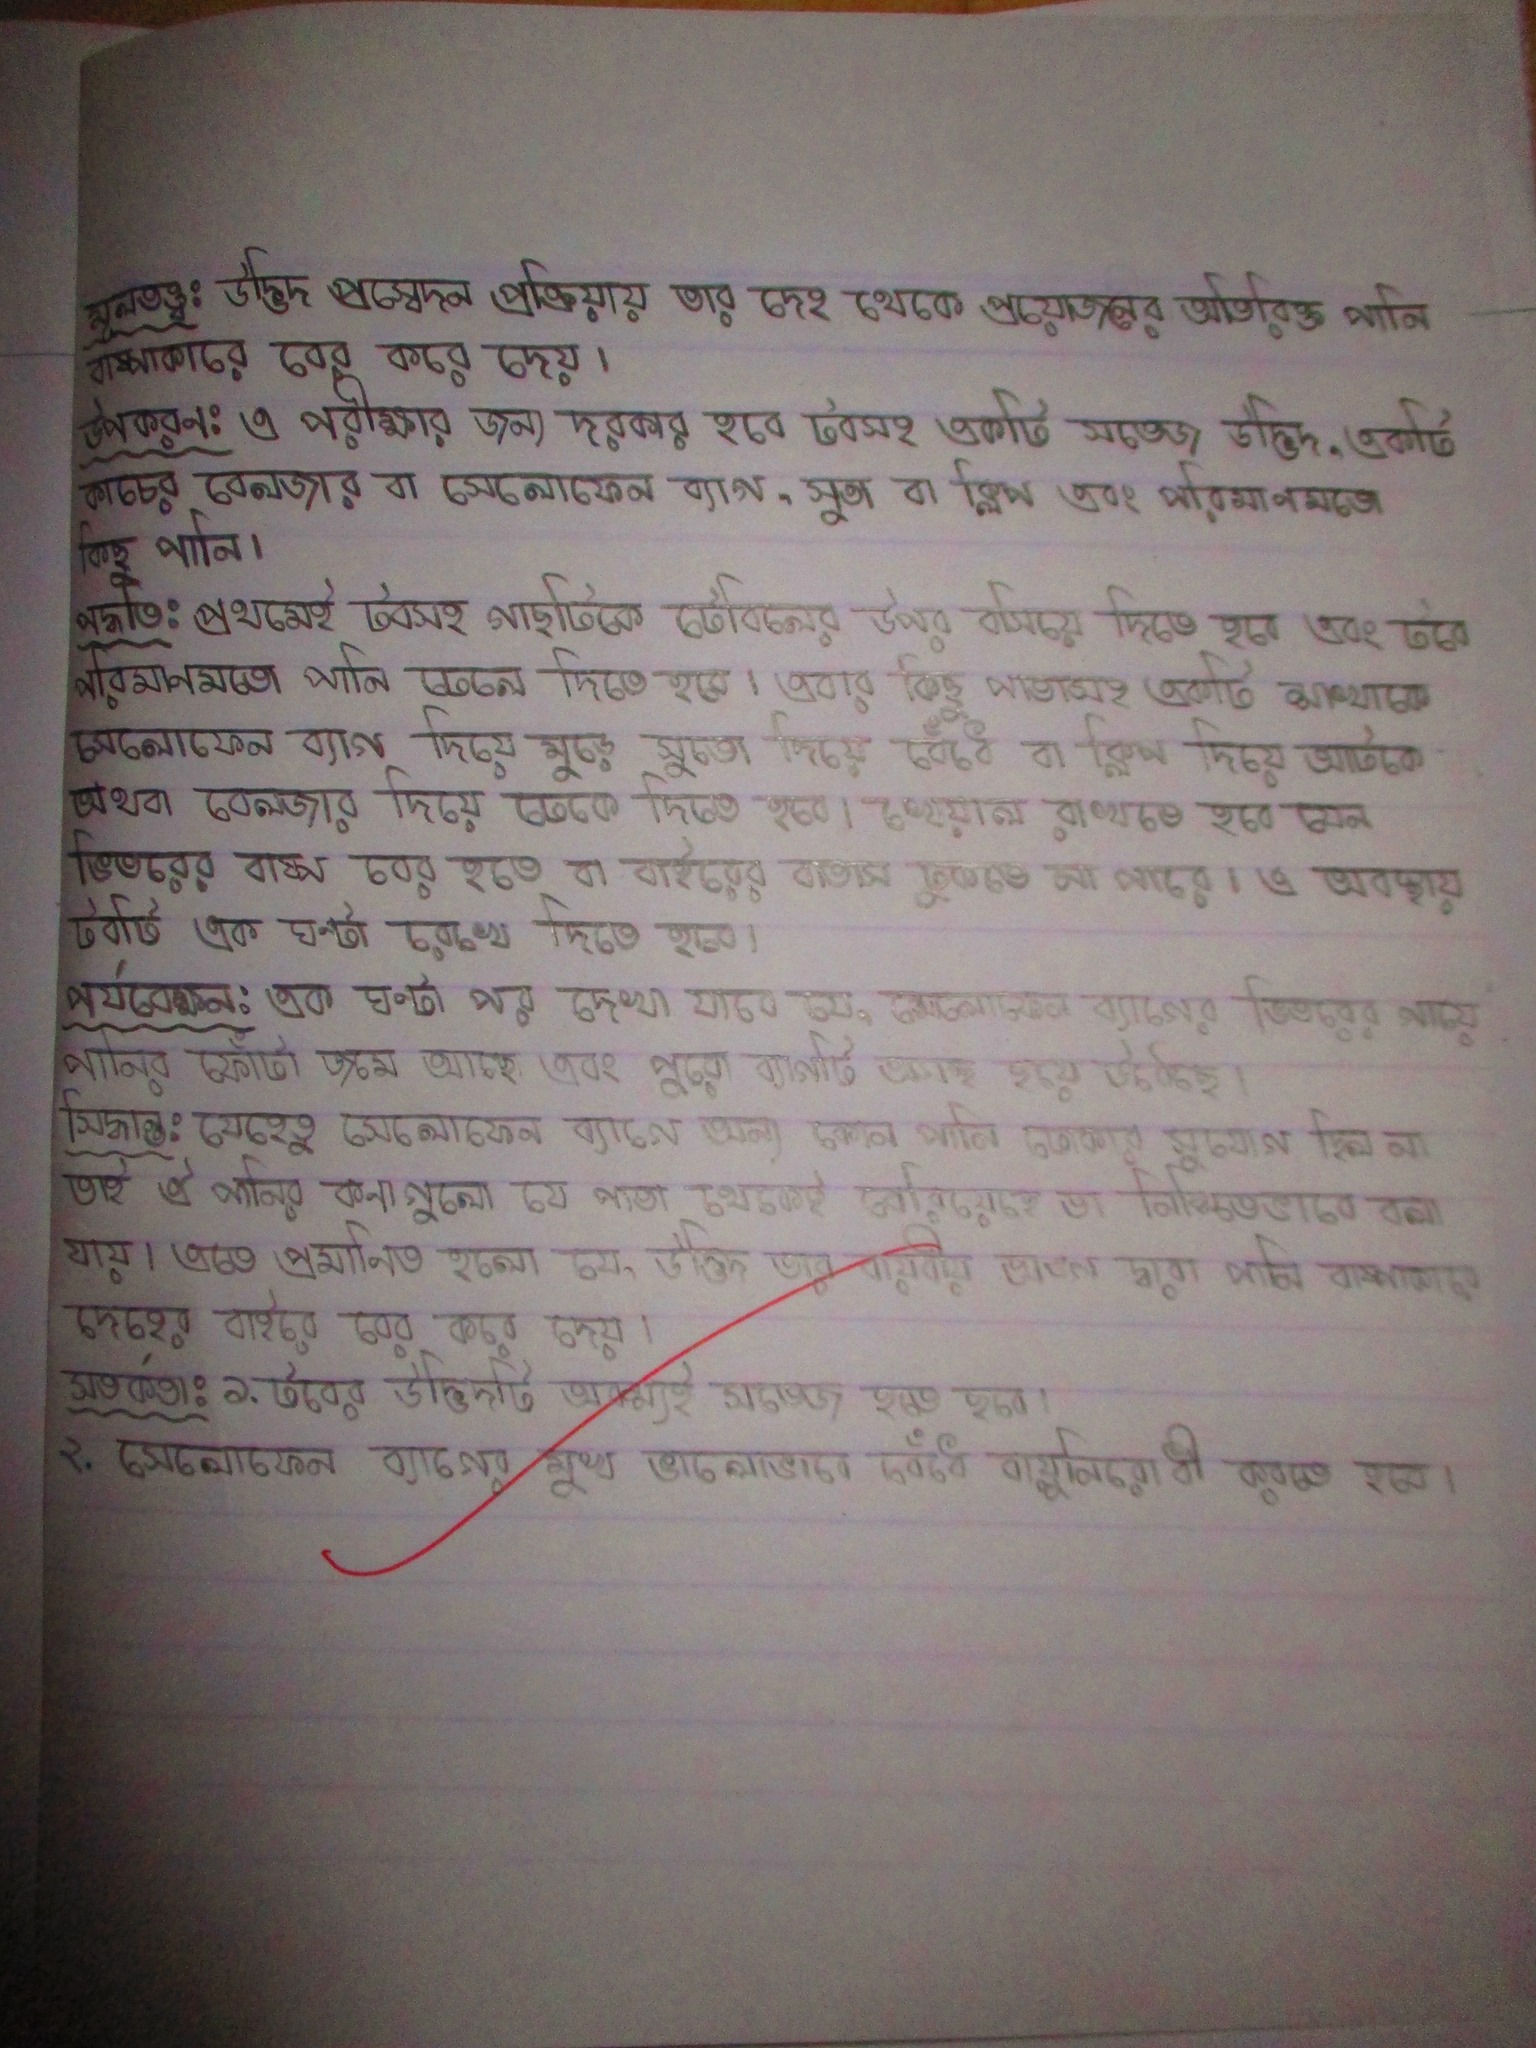 মূলতত্ত্ব: উদ্ভিদ প্রস্বেদন প্রক্রিয়ায় তার দেহ থেকে প্রয়োজনের অতিরিক্ত পানি
বাষ্পাকারে বের করে দেয়।
উপকরন: এ পরীক্ষার জন্য দরকার হবে টবসহ একটি সতেজ উদ্ভিদ, একটি
কাচের বেলজার বা সেলোফেন ব্যাগ, সুতা বা ক্লিপ এবং পরিমাণমতো
কিছু পানি।
পদ্ধতি: প্রথমেই টবসহ গাছটিকে টেবিলের উপর বসিয়ে দিতে হবে এবং টবে
পরিমাণমতো পানি ঢেলে দিতে হবে। এবার কিছু পাতাসহ একটি শাখাকে
সেলোফেন ব্যাগ দিয়ে মুড়ে সুতো দিয়ে বেঁধে বা ক্লিপ দিয়ে আটকে
অথবা বেলজার দিয়ে ঢেকে দিতে হবে। খেয়াল রাখতে হবে যেন
ভিতরের বাষ্প বের হতে বা বাইরের বাতাস ঢুকতে না পারে। এ অবস্থায়
টবটি এক ঘণ্টা রেখে দিতে হবে।
পর্যবেক্ষন: এক ঘণ্টা পর দেখা যাবে যে, সেলোফেন ব্যাগের ভিতরের গায়ে
পানির ফোঁটা জমে আছে এবং পুরো ব্যাগটি অসচ্ছ হয়ে উঠেছে।
সিদ্ধান্ত: যেহেতু সেলোফেন ব্যাগে অন্য কোন পানি ঢোকার সুযোগ ছিল না
তাই ঐ পানির কনাগুলো যে পাতা থেকেই বেরিয়েছে তা নিশ্চিতভাবে বলা
যায়। এতে প্রমানিত হলো যে, উদ্ভিদ তার বায়বীয় অংশ দ্বারা পানি বাষ্পাকারে
দেহের বাইরে বের করে দেয়।
সতর্কতা: ১. টবের উদ্ভিদটি অবশ্যই সতেজ হতে হবে।
২. সেলোফেন ব্যাগের মুখ ভালোভাবে বেঁধে বায়ুনিরোধী করতে হবে।